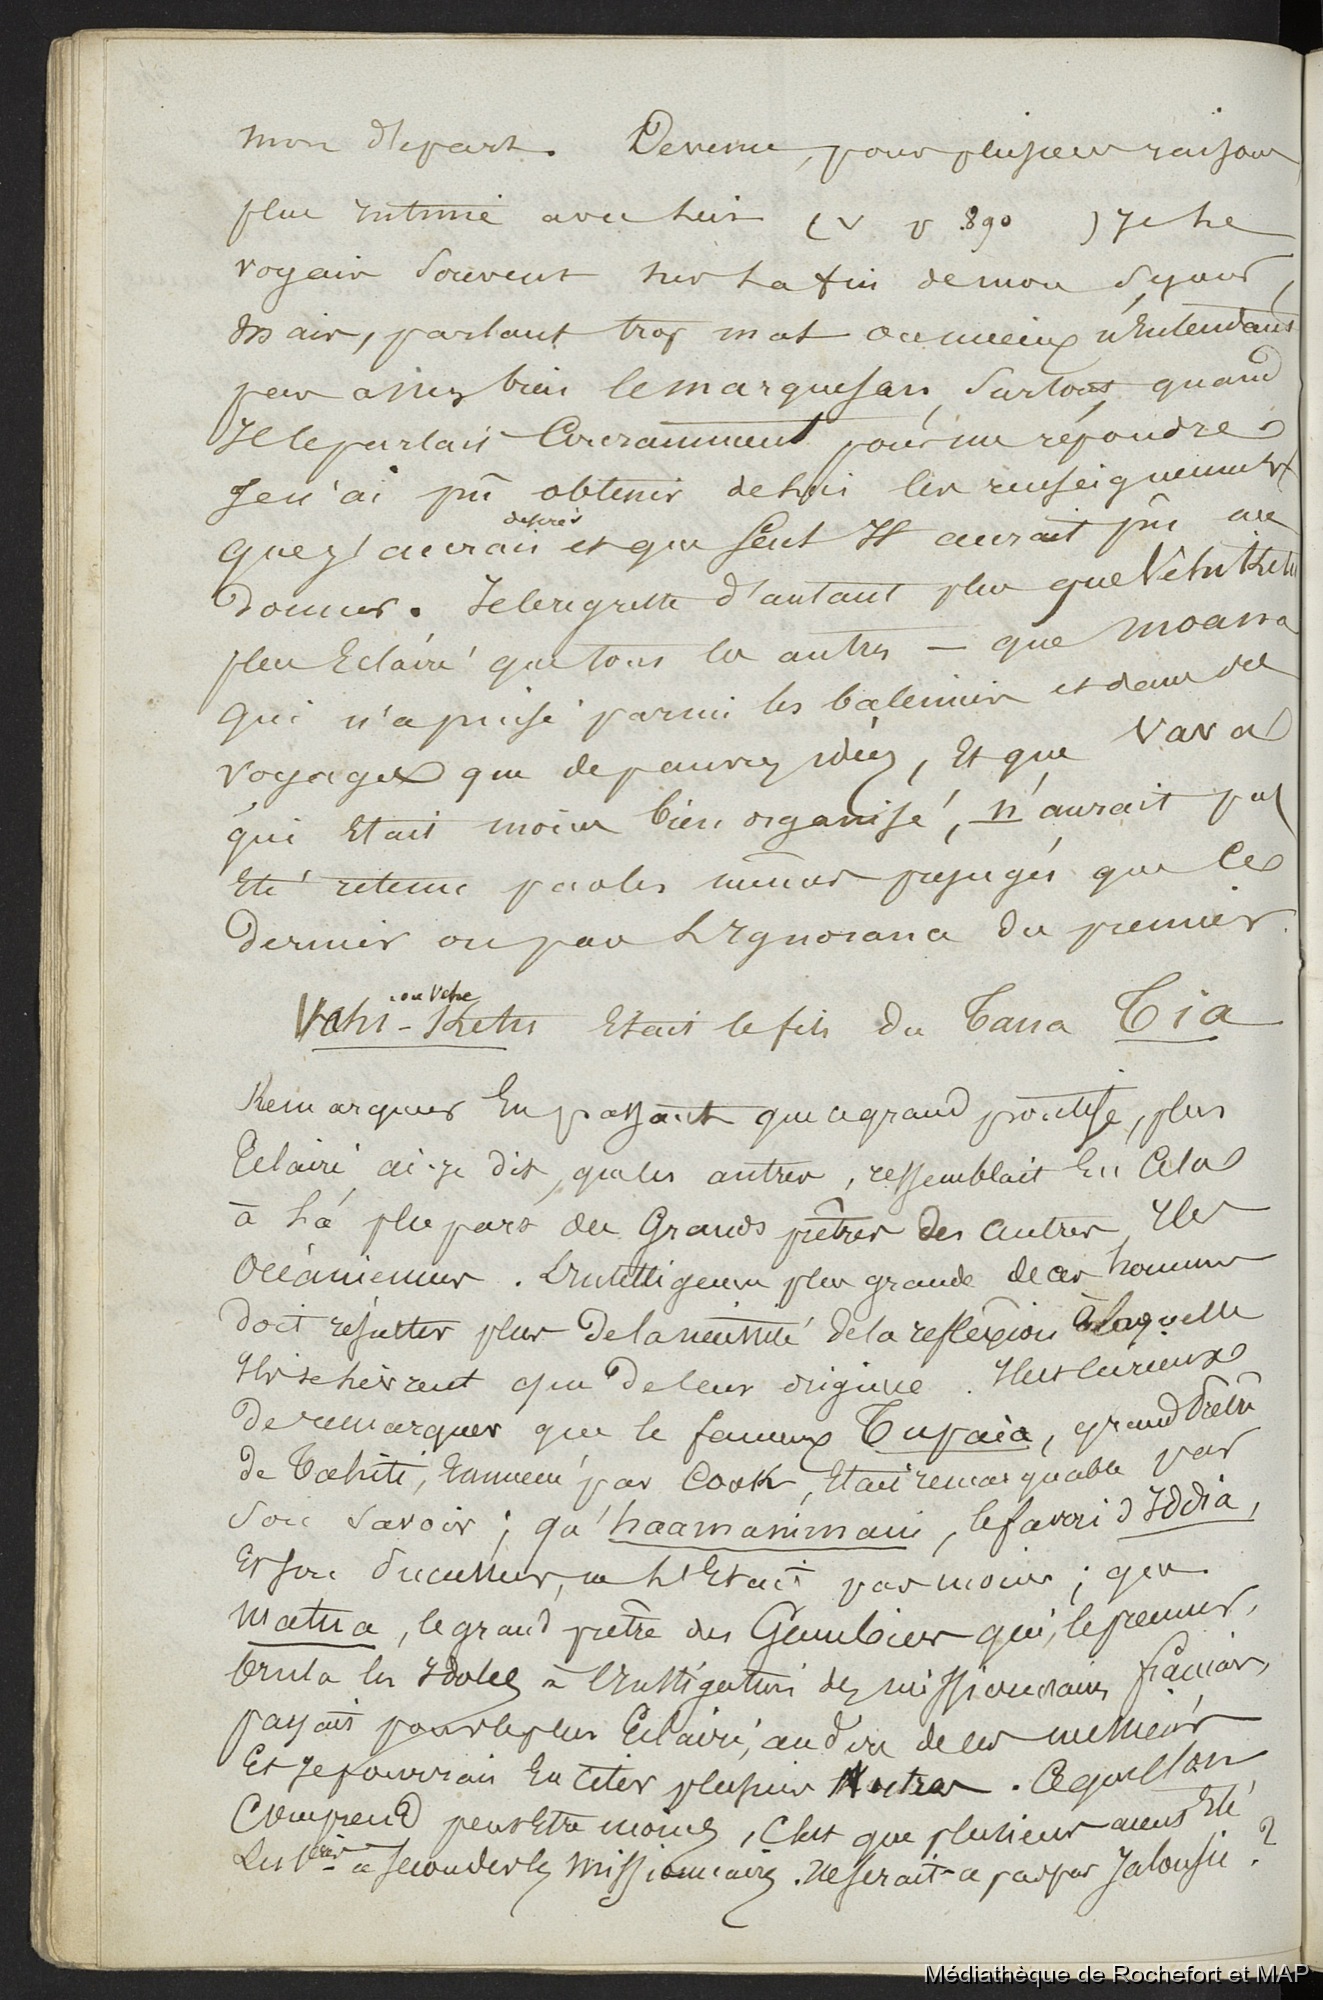 mon départ. Devenu, pour plusieurs raisons
plus Intime avec lui (v p 890 ) Je le
voyais souvent sur la fin de mon séjour,
Mais, parlant trop mal ou mieux n'Entendant
pas assez bien le marquesan, surtout quand
Il le parlait Couramment pour me répondre
Je n'ai pû obtenir de lui les renseignements
que j'aurais désirés et que seul Il aurait pû me
donner. Je le regrette d'autant plus que Véhi Kehi
plus Eclairé que tous les autres — que moana
qui n'a puisé parmi les baleiniers et dans ses
voyages que de pauvres idées, Et que Vava
qui Etait moins bien organisé, n'aurait pas
Eté retenu par les mêmes préjugés que le
dernier ou par l'Ignorance du premier.
Vehi-Kehi ou Vehe Etait le fils du Taua Tia
Remarquons En passant que ce grand prêtise, plus
Eclairé, ai-je dit, que les autres, ressemblait En Cela
à la plupart des Grands prêtres des autres Iles
océaniennes. L'Intelligence plus grande de ces hommes
doit résulter plus de la nécessité de la reflexion à laquelle
Ils se livrent que de leur origine. Il est Curieux
de remarquer que le fameux Tupaia, grand Prêtre
de Taehiti, Emmené par Cook, Etait remarquable par
son savoir; qu'haamanimani, le favori d'Iddia,
Et son successeur, ne l'Etait pas moins; que
matua, le grand prêtre des Gambier qui, le premier,
brula les Idoles à l'Instigation des missionnaires français,
passait pour le plus Eclairé, au dire de ces messieurs
Et Je pourrais En citer plusieurs Autres. Ce que l'on
Comprend peut Etre moins, C'est que plusieurs aient Eté
les 1ers à seconder les missionnaires. Ne serait-ce pas par Jalousie ?
Médiathèque de Rochefort et MAP